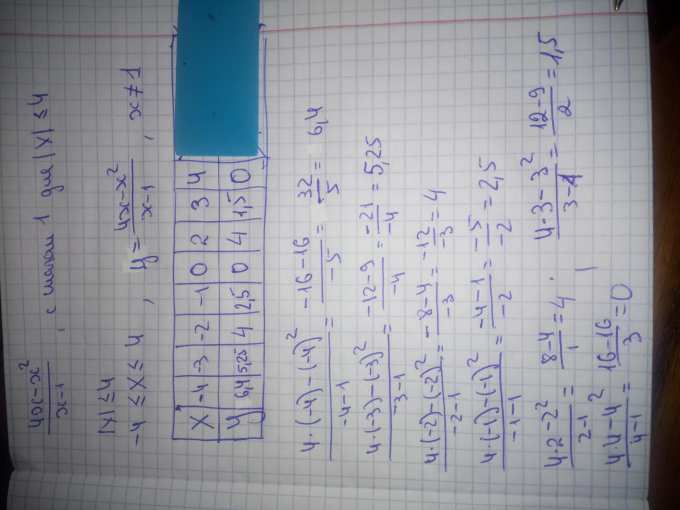 (4x-x²)/(x-1) , с шагом 1 для |x| ≤ 4
|x| ≤ 4
-4 ≤ x ≤ 4 , y = (4x-x²)/(x-1) , x ≠ 1
x | -4 | -3 | -2 | -1 | 0 | 2 | 3 | 4
y | 6,4 | 5,25 | 4 | 2,5 | 0 | 4 | 1,5 | 0
(4·(-4)-(-4)²)/(-4-1) = (-16-16)/(-5) = 32/5 = 6,4
(4·(-3)-(-3)²)/(-3-1) = (-12-9)/(-4) = (-21)/(-4) = 5,25
(4·(-2)-(-2)²)/(-2-1) = (-8-4)/(-3) = (-12)/(-3) = 4
(4·(-1)-(-1)²)/(-1-1) = (-4-1)/(-2) = (-5)/(-2) = 2,5
(4·2-2²)/(2-1) = (8-4)/1 = 4. (4·3-3²)/(3-1) = (12-9)/2 = 1,5
(4·4-4²)/(4-1) = (16-16)/3 = 0